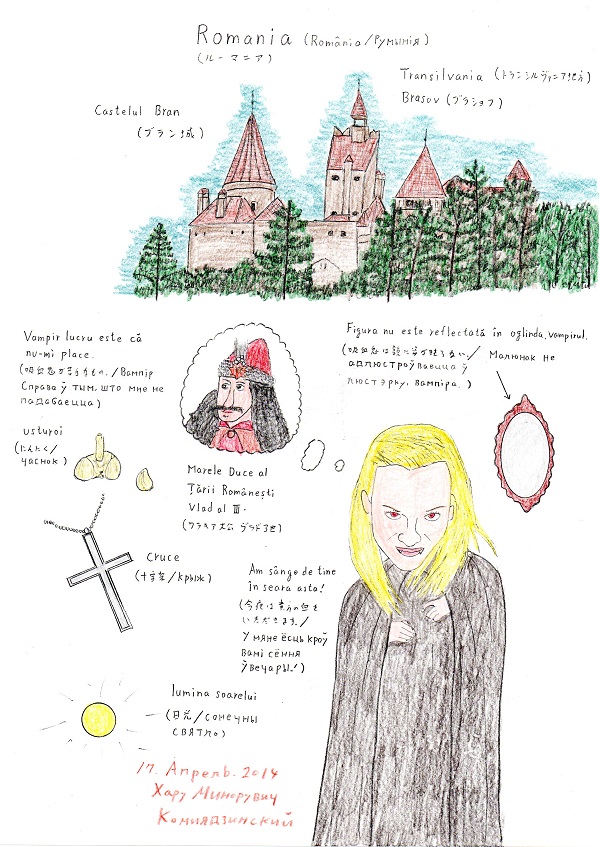 Romania (România/Румынія)
(ルーマニア)
Transilvania (トランシルヴァニア地方)
Brasov (ブラショフ)
Castelul Bran
(ブラン城)
Vampir lucru este că
nu-mi place.
(吸血鬼が苦手なもの。/Вампір
Справа ў тым, што мне не
падабаецца)
usturoi
(にんにく/
часнок)
Marele Duce al
Țării Românești
Vlad al III.
(ワラキア大公 ヴラド3世)
Figura nu este reflectată în oglinda, vampirul.
(吸血鬼は鏡に姿が映らない/ Малюнок не
адлюстроўваецца ў
люстэрку, вампіра.)
cruce
(十字架/крыж)
Am sânge de tine
în seara asta!
(今夜は貴方の血を
いただきます。/
У мяне ёсць кроў
вамі сёння
ўвечары!)
lumina soarelui
(日光/сонечны
святло)
17. Апрель. 2014
Хару Минорувич
Комиядзинский